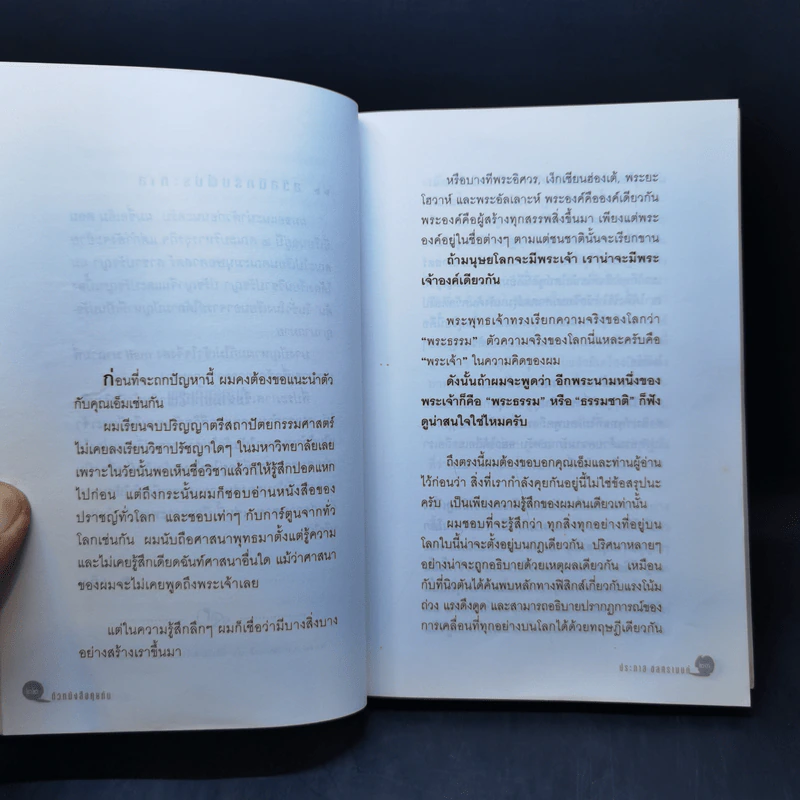 ก่อนที่จะถกปัญหานี้ ผมคงต้องขอแนะนำตัว
กับคุณเอ็มเช่นกัน
ผมเรียนจบปริญญาตรีสถาปัตยกรรมศาสตร์
ไม่เคยลงเรียนวิชาปรัชญาใดๆ ในมหาวิทยาลัยเลย
เพราะในวัยนั้นพอเห็นชื่อวิชาแล้วก็ให้รู้สึกปอดแหก
ไปก่อน แต่ถึงกระนั้นผมก็ชอบอ่านหนังสือของ
ปราชญ์ทั่วโลก และชอบเท่าๆ กับการ์ตูนจากทั่ว
โลกเช่นกัน ผมนับถือศาสนาพุทธมาตั้งแต่รู้ความ
และไม่เคยรู้สึกเดียดฉันท์ศาสนาอื่นใด แม้ว่าศาสนา
ของผมจะไม่เคยพูดถึงพระเจ้าเลย
แต่ในความรู้สึกลึกๆ ผมก็เชื่อว่ามีบางสิ่งบาง
อย่างสร้างเราขึ้นมา
หรือบางทีพระอิศวร, เง็กเซียนฮ่องเต้, พระยะ
โฮวาห์ และพระอัลเลาะห์ พระองค์คือองค์เดียวกัน
พระองค์คือผู้สร้างทุกสรรพสิ่งขึ้นมา เพียงแต่พระ
องค์อยู่ในชื่อต่างๆ ตามแต่ชนชาตินั้นจะเรียกขาน
ถ้ามนุษย์โลกจะมีพระเจ้า เราน่าจะมีพระ
เจ้าองค์เดียวกัน
พระพุทธเจ้าทรงเรียกความจริงของโลกว่า
“พระธรรม” ตัวความจริงของโลกนี่แหละครับคือ
“พระเจ้า” ในความคิดของผม
ดังนั้นถ้าผมจะพูดว่า อีกพระนามหนึ่งของ
พระเจ้าก็คือ “พระธรรม” หรือ “ธรรมชาติ” ก็ฟัง
ดูน่าสนใจใช่ไหมครับ
ถึงตรงนี้ผมต้องขอบอกคุณเอ็มและท่านผู้อ่าน
ไว้ก่อนว่า สิ่งที่เรากำลังคุยกันอยู่นี้ไม่ใช่ข้อสรุปนะ
ครับ เป็นเพียงความรู้สึกของผมคนเดียวเท่านั้น
ผมชอบที่จะรู้สึกว่า ทุกสิ่งทุกอย่างที่อยู่บน
โลกใบนี้น่าจะตั้งอยู่บนกฎเดียวกัน ปริศนาหลายๆ
อย่างน่าจะถูกอธิบายด้วยเหตุผลเดียวกัน เหมือน
กับที่นิวตันได้ค้นพบหลักทางฟิสิกส์เกี่ยวกับแรงโน้ม
ถ่วง แรงดึงดูด และสามารถอธิบายปรากฏการณ์ของ
การเคลื่อนที่ทุกอย่างบนโลกได้ด้วยทฤษฎีเดียวกัน
ประภาส ชลศรานนท์